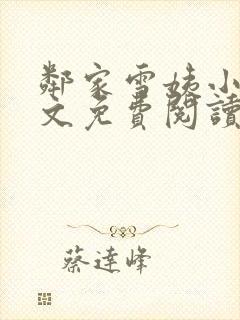 鄰家雪姨小
文免費閱讀
蔡達峰